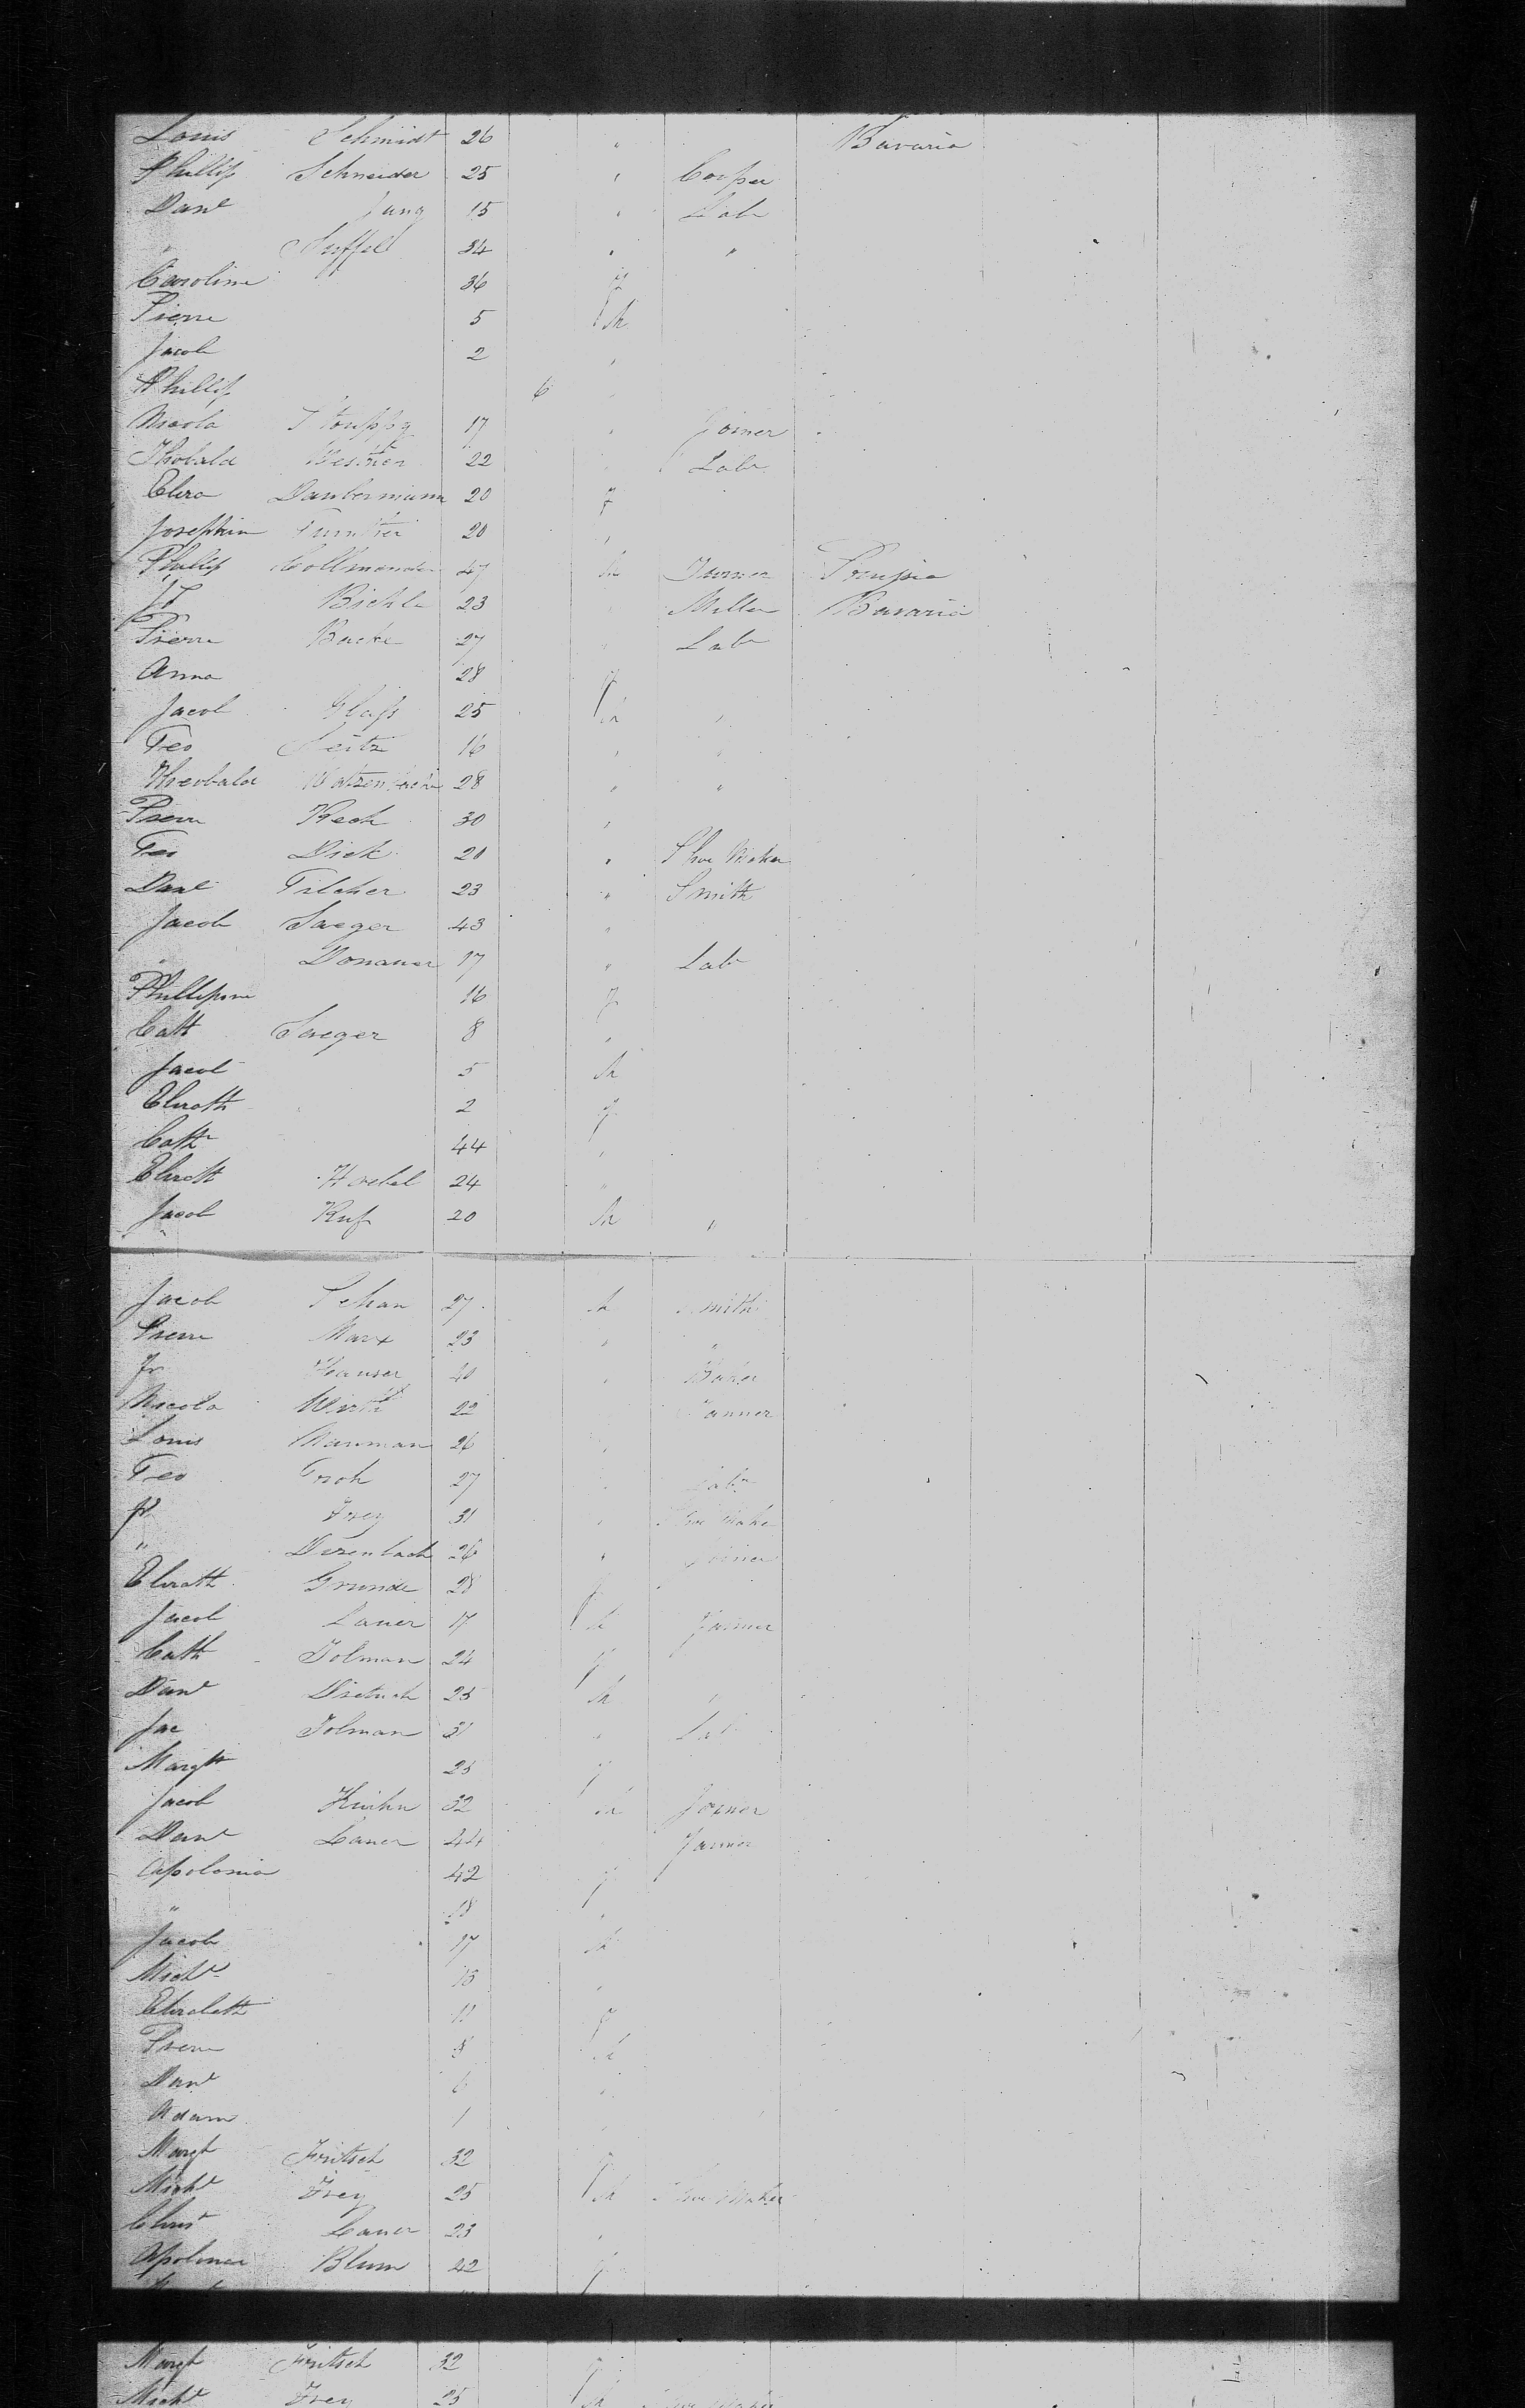 Louis Schmidt 26 " Bavaria
Phillip Schneider 25 " Cooper
Danl Jung 15 " Labr
" Seiffel 34 " "
Caroline 36 f
Pierre 5 M
Jacob 2 "
Phillip 6 "
Nicola Stouppy 17 " Joiner
Thobald 22 Labr
Eliza Daubermann 20 f
Josephine 20 "
Phillip 47 M Prussia
Jn Biehle 23 Miller Bavaria
Pierre Backe 27 " Labr
Anna 28 f
Jacob Glass 25 M "
Geo Seitz 16 " "
Theobald 28 " "
Pierre Kech 30 "
Geo Dick 20 " Shoe Maker
Danl Filcher 23 " Smith
Jacob Saeger 43 "
" Donauer 17 " Labr
Phillipine 16 f
Cath Saeger 8 "
Jacob 5 M
Elizath 2 f
Cath 44 "
Elizath Hoebel 24 "
Jacob Kuf 20 M "
Jacob Schan 27 M Smith
Pierre Marx 23 " "
Jn Hauser 40 " Baker
Nicola Wirth 22 Tanner
Louis Mauman 26 "
Geo Groh 27 " Labr
Jn Frey 31 " Shoe Make
" Dezenbach 26 " Joiner
Elizath Grunde 28 f
Jacob Lauer 17 M Farmer
Cath Folman 24 f
Danl Dietrich 25 M "
Jac Folman 31 " Lab
Margt 25 f
Jacob Kuihn 32 M Joiner
Danl Lauer 44 Farmer
Apolonia 42 f
" 18 "
Jacob 17 M
Michl 13 "
Elizabeth 11 f
Pierre 8 M
Danl 6 "
Adam 1
Margt Fritsch 32 f
Michl Frey 25 M Shoe Maker
Christ Lauer 23 "
Apolonia Blum 42 f
Margt Fritsch 32 f
Michl Frey 25 M Shoe Maker